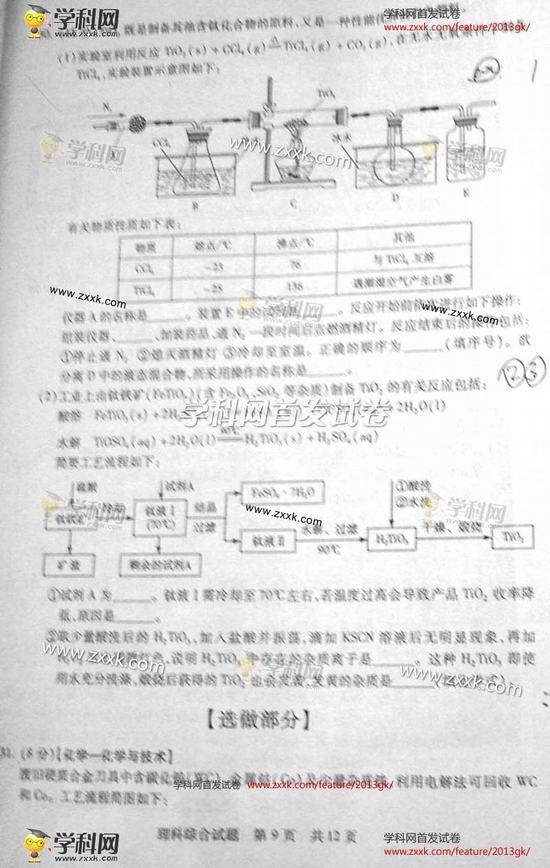 学科网
学科网首发试卷
www.zxxk.com/feature/2013gk/
既是制备其他含钛化合物的原料,又是一种性能
(1)实验室利用反应 TiO₂(s)+CCl₄(g) △ TiCl₄(g)+CO₂(g),在无水无氧条件下
TiCl₄,实验装置示意图如下:
1
N₂
TiO₂
CCl₄
冰水
学科网
www.zxxk.com
学科网
B
C
D
E
有关物质性质如下表:
物质 熔点/℃ 沸点/℃ 其他
CCl₄ -23 76 与TiCl₄互溶
TiCl₄ -25 136 遇潮湿空气产生白雾
www.zxxk.com
www.zxxk.com
仪器A的名称是____。装置E中的试剂是____。反应开始前依次进行如下操作:
组装仪器、____、加装药品、通N₂一段时间后点燃酒精灯。反应结束后的操作包括:
①停止通N₂ ②熄灭酒精灯 ③冷却至室温。正确的顺序为____(填序号)。欲
分离D中的液态混合物,所采用操作的名称是____。
②③
(2)工业上由钛铁矿(FeTiO₃)(含Fe₂O₃、SiO₂等杂质)制备TiO₂的有关反应包括:
酸溶 FeTiO₃(s)+2H₂ 2H₂O(l)
学科网首发试卷
水解 TiOSO₄(aq)+2H₂O(l) 90℃ H₂TiO₃(s)+H₂SO₄(aq)
简要工艺流程如下:
硫酸
试剂A
①酸洗
②水洗
学科网
学科网
钛铁矿
冷却
钛液Ⅰ
(70℃)
结晶
过滤
FeSO₄·7H₂O
www.zxxk.com
钛液Ⅱ
水解、过滤
90℃
H₂TiO₃
干燥、煅烧
TiO₂
矿渣
剩余的试剂A
①试剂A为____。钛液Ⅰ需冷却至70℃左右,若温度过高会导致产品TiO₂收率降
低,原因是____。
②取少量酸洗后的H₂TiO₃,加入盐酸并振荡,滴加KSCN溶液后无明显现象,再加
微红色,说明H₂TiO₃中存在的杂质离子是____。这种H₂TiO₃即使
www.zxxk.com
www.zxxk.com
用水充分洗涤,煅烧后获得的TiO₂也会发黄,发黄的杂质是____
【选做部分】
31.(8分)【化学—化学与技术】
废旧硬质合金刀具中含碳化钨(WC)、金属钴(Co)及少量杂质铁,利用电解法可回收WC
和Co。工艺流程简图如下:
学科网首发试卷
www.zxxk.com/feature/2013gk/
学科网
理科综合试题 第9页 共12页
学科网首发试卷
www.zxxk.com/feature/2013gk/